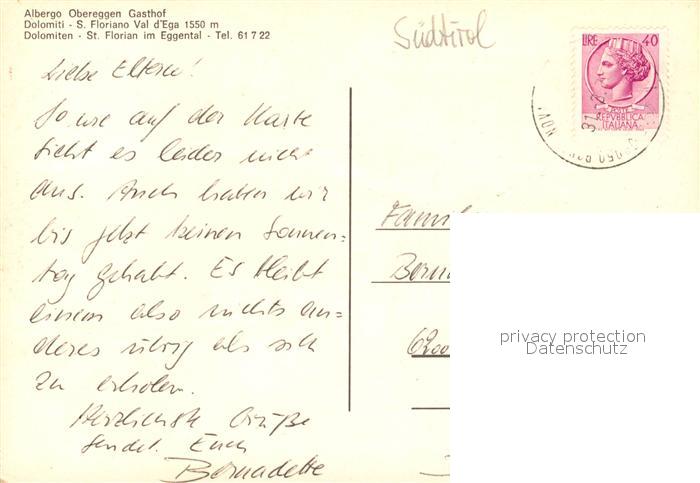 Albergo Obereggen Gasthof
Dolomiti - S. Floriano Val d'Ega 1550 m
Dolomiten - St. Florian im Eggental - Tel. 61 7 22
Südtirol
LIRE 40
POSTE
REPVBBLICA
ITALIANA
Liebe Eltern!
So wie auf der Karte
sieht es leider nicht
aus. Auch haben wir
bis jetzt keinen Sonnen-
tag gehabt. Es bleibt
einem also nichts an-
deres übrig als sich
zu erholen.
Herzlichste Grüße
sendet Euch
Bernadette
Famil
Bern
6200
privacy protection
Datenschutz